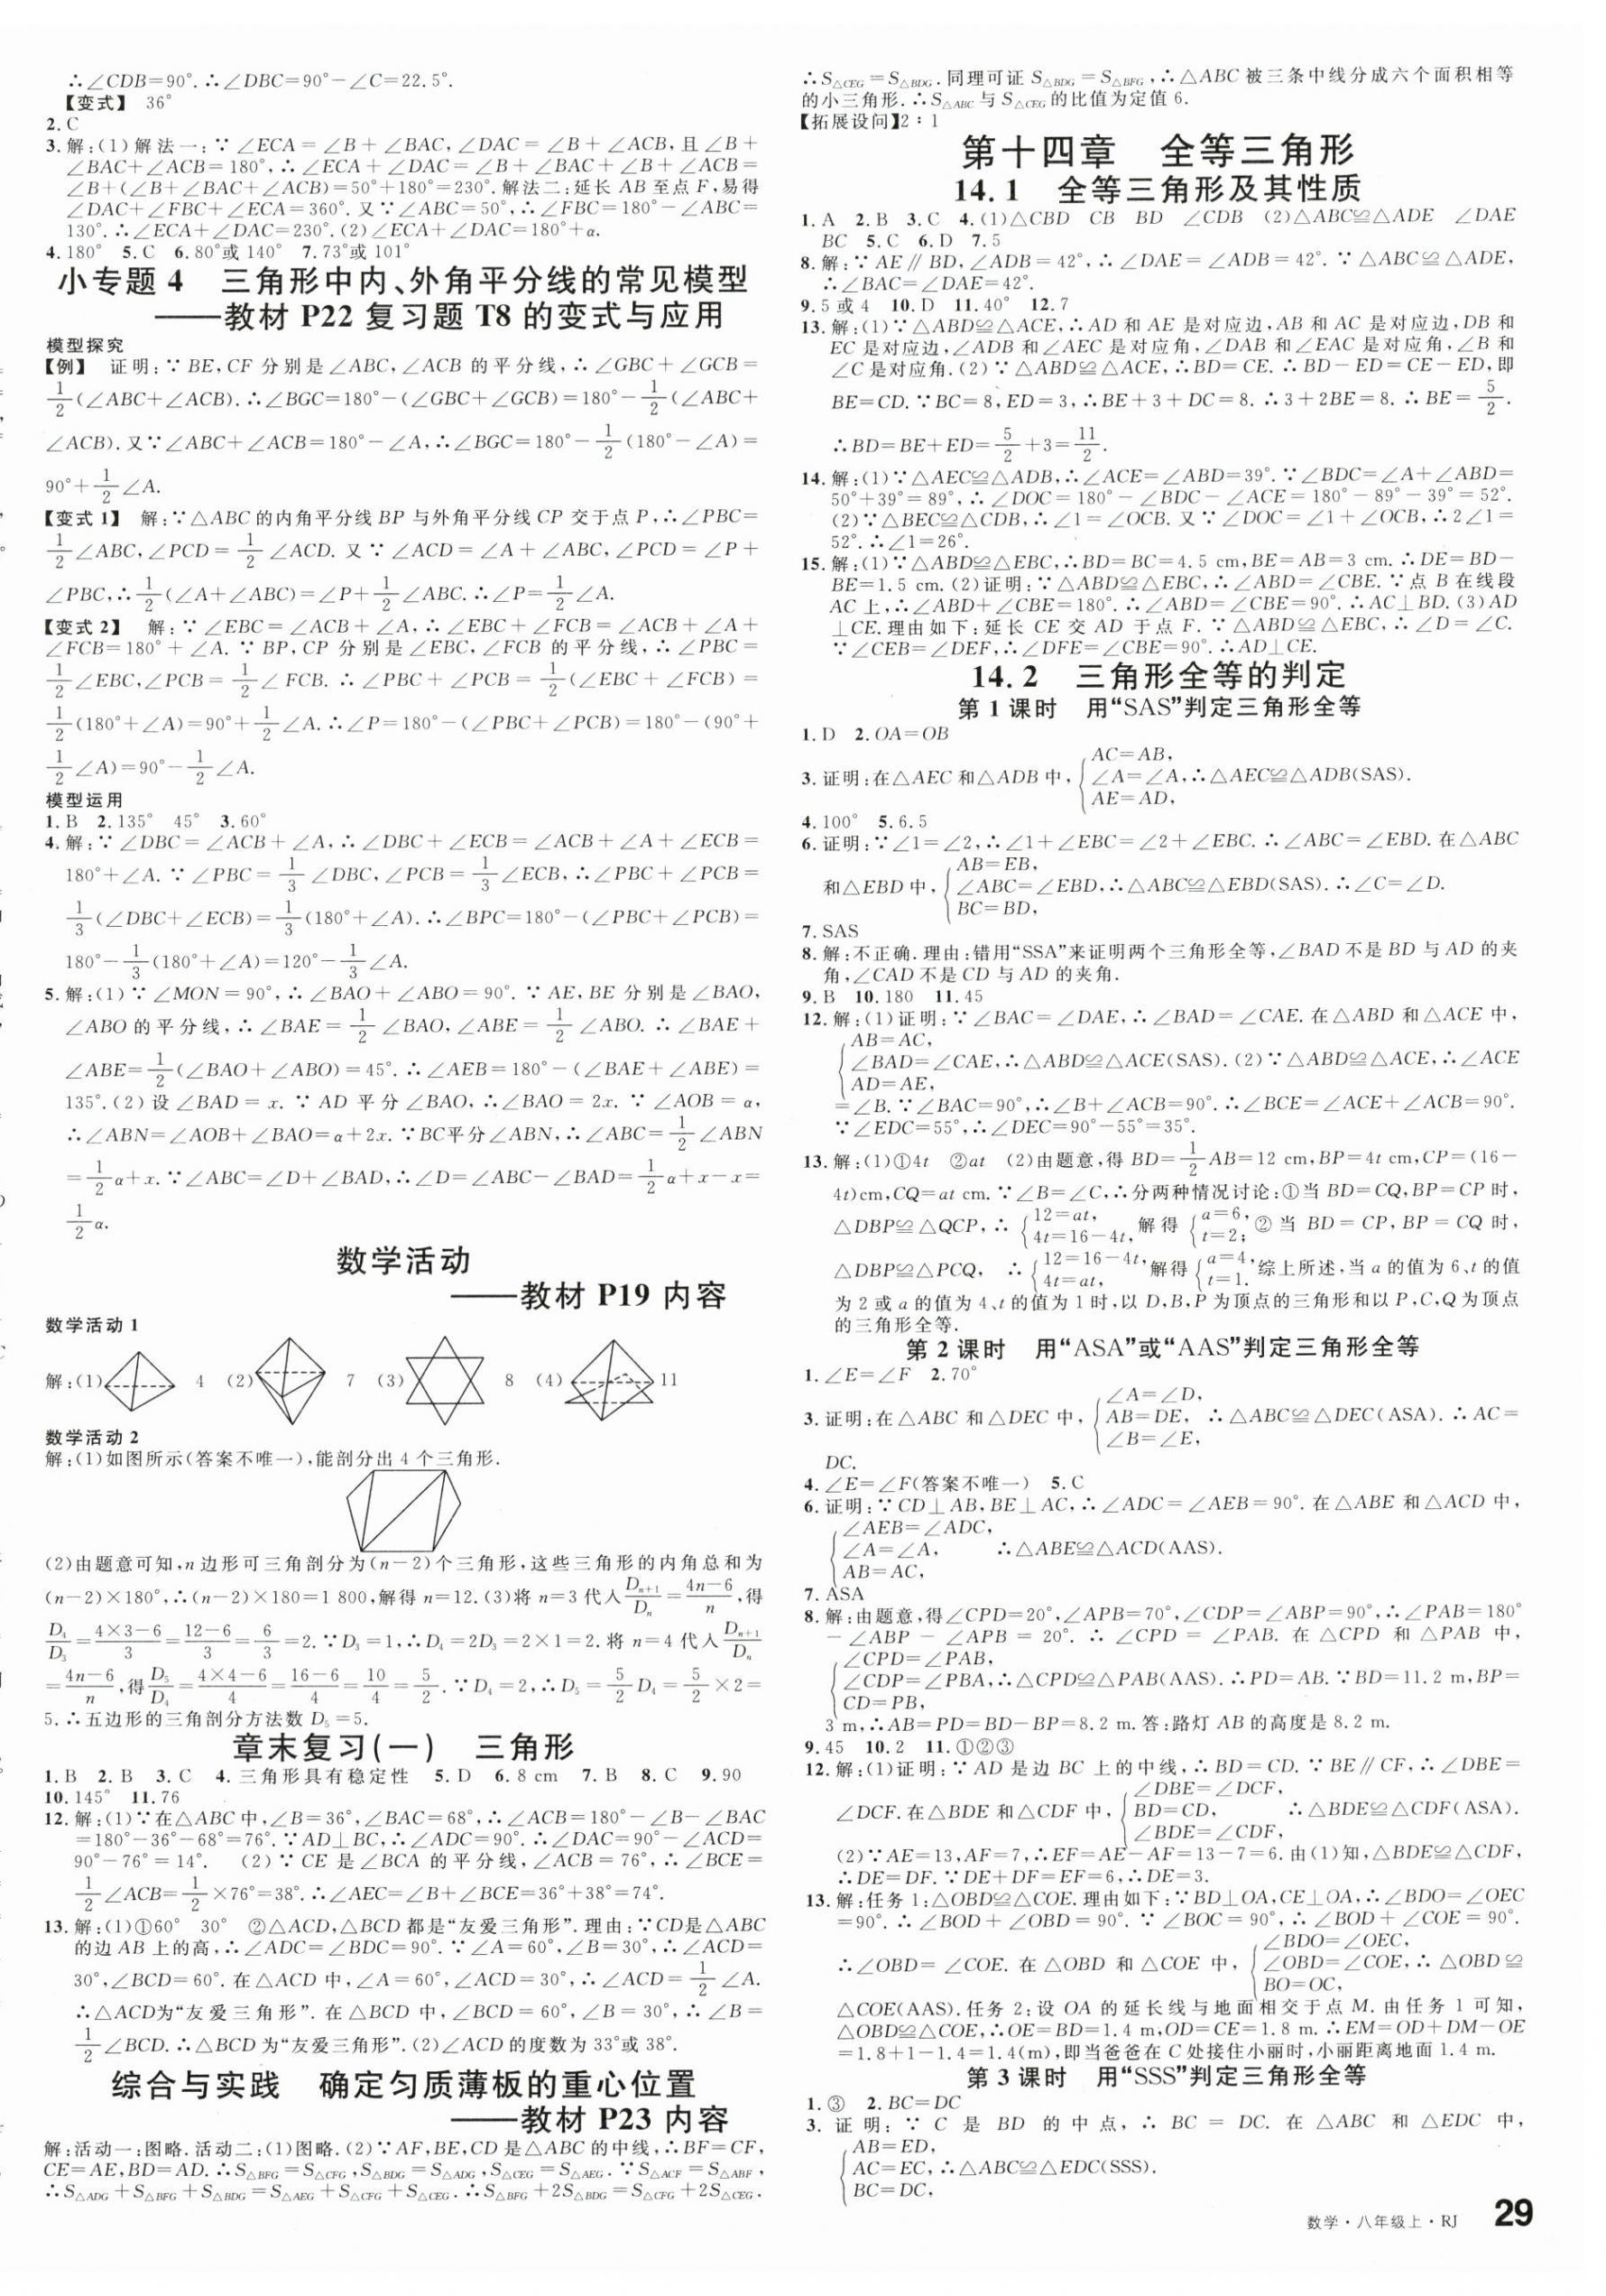 ∴∠CDB=90°.∴∠DBC=90°－∠C=22.5°.
【变式】 36°
2.C
3.解:(1)解法一:∵∠ECA=∠B+∠BAC,∠DAC=∠B+∠ACB,且∠B+
∠BAC+∠ACB=180°,∴∠ECA+∠DAC=∠B+∠BAC+∠B+∠ACB=
∠B+(∠B+∠BAC+∠ACB)=50°+180°=230°.解法二:延长 AB 至点 F,易得
∠DAC+∠FBC+∠ECA=360°.又∵∠ABC=50°,∴∠FBC=180°－∠ABC=
130°.∴∠ECA+∠DAC=230°.(2)∠ECA+∠DAC=180°+α.
4.180° 5.C 6.80°或 140° 7.73°或 101°
小专题 4 三角形中内、外角平分线的常见模型
——教材 P22 复习题 T8 的变式与应用
模型探究
【例】 证明:∵BE,CF 分别是∠ABC,∠ACB 的平分线,∴∠GBC+∠GCB=
1/2(∠ABC+∠ACB).∴∠BGC=180°－(∠GBC+∠GCB)=180°－1/2(∠ABC+
∠ACB).又∵∠ABC+∠ACB=180°－∠A,∴∠BGC=180°－1/2(180°－∠A)=
90°+1/2∠A.
【变式 1】 解:∵△ABC 的内角平分线 BP 与外角平分线 CP 交于点 P,∴∠PBC=
1/2∠ABC,∠PCD=1/2∠ACD.又∵∠ACD=∠A+∠ABC,∠PCD=∠P+
∠PBC,∴1/2(∠A+∠ABC)=∠P+1/2∠ABC.∴∠P=1/2∠A.
【变式 2】 解:∵∠EBC=∠ACB+∠A,∴∠EBC+∠FCB=∠ACB+∠A+
∠FCB=180°+∠A.∵BP,CP 分别是∠EBC,∠FCB 的平分线,∴∠PBC=
1/2∠EBC,∠PCB=1/2∠FCB.∴∠PBC+∠PCB=1/2(∠EBC+∠FCB)=
1/2(180°+∠A)=90°+1/2∠A.∴∠P=180°－(∠PBC+∠PCB)=180°－(90°+
1/2∠A)=90°－1/2∠A.
模型运用
1.B 2.135° 45° 3.60°
4.解:∵∠DBC=∠ACB+∠A,∴∠DBC+∠ECB=∠ACB+∠A+∠ECB=
180°+∠A.∵∠PBC=1/3∠DBC,∠PCB=1/3∠ECB,∴∠PBC+∠PCB=
1/3(∠DBC+∠ECB)=1/3(180°+∠A).∴∠BPC=180°－(∠PBC+∠PCB)=
180°－1/3(180°+∠A)=120°－1/3∠A.
5.解:(1)∵∠MON=90°,∴∠BAO+∠ABO=90°.∵AE,BE 分别是∠BAO,
∠ABO 的平分线,∴∠BAE=1/2∠BAO,∠ABE=1/2∠ABO.∴∠BAE+
∠ABE=1/2(∠BAO+∠ABO)=45°.∴∠AEB=180°－(∠BAE+∠ABE)=
135°.(2)设∠BAD=x.∵AD 平分∠BAO,∴∠BAO=2x.∵∠AOB=α,
∴∠ABN=∠AOB+∠BAO=α+2x.∵BC平分∠ABN,∴∠ABC=1/2∠ABN
=1/2α+x.∵∠ABC=∠D+∠BAD,∴∠D=∠ABC－∠BAD=1/2α+x－x=
1/2α.
数学活动
——教材 P19 内容
数学活动 1
解:(1) 4 (2) 7 (3) 8 (4) 11
数学活动 2
解:(1)如图所示(答案不唯一),能剖分出 4 个三角形.
(2)由题意可知,n 边形可三角剖分为(n－2)个三角形,这些三角形的内角总和为
(n－2)×180°,∴(n－2)×180=1 800,解得 n=12.(3)将 n=3 代入Dₙ₊₁/Dₙ=(4n－6)/n,得
D₄/D₃=(4×3－6)/3=(12－6)/3=6/3=2.∵D₃=1,∴D₄=2D₃=2×1=2.将 n=4 代入Dₙ₊₁/Dₙ
=(4n－6)/n,得D₅/D₄=(4×4－6)/4=(16－6)/4=10/4=5/2.∵D₄=2,∴D₅=5/2D₄=5/2×2=
5.∴五边形的三角剖分方法数 D₅=5.
章末复习(一) 三角形
1.B 2.B 3.C 4.三角形具有稳定性 5.D 6.8 cm 7.B 8.C 9.90
10.145° 11.76
12.解:(1)∵在△ABC 中,∠B=36°,∠BAC=68°,∴∠ACB=180°－∠B－∠BAC
=180°－36°－68°=76°.∵AD⊥BC,∴∠ADC=90°.∴∠DAC=90°－∠ACD=
90°－76°=14°. (2)∵CE 是∠BCA 的平分线,∠ACB=76°,∴∠BCE=
1/2∠ACB=1/2×76°=38°.∴∠AEC=∠B+∠BCE=36°+38°=74°.
13.解:(1)①60° 30° ②△ACD,△BCD 都是“友爱三角形”.理由:∵CD是△ABC
的边 AB 上的高,∴∠ADC=∠BDC=90°.∵∠A=60°,∠B=30°,∴∠ACD=
30°,∠BCD=60°.在△ACD 中,∠A=60°,∠ACD=30°,∴∠ACD=1/2∠A.
∴△ACD为“友爱三角形”.在△BCD 中,∠BCD=60°,∠B=30°,∴∠B=
1/2∠BCD.∴△BCD 为“友爱三角形”.(2)∠ACD 的度数为 33°或 38°.
综合与实践 确定匀质薄板的重心位置
——教材 P23 内容
解:活动一:图略.活动二:(1)图略.(2)∵AF,BE,CD 是△ABC 的中线,∴BF=CF,
CE=AE,BD=AD.∴S△BFG=S△CFG,S△BDG=S△ADG,S△CEG=S△AEG.∵S△ACF=S△ABF,
∴S△ADG+S△BFG+S△BDG=S△AEG+S△CFG+S△CEG.∴S△BFG+2S△BDG=S△CFG+2S△CEG.
∴S△CEG=S△BDG.同理可证 S△BDG=S△BFG,∴△ABC 被三条中线分成六个面积相等
的小三角形.∴S△ABC与 S△CEG的比值为定值 6.
【拓展设问】2∶1
第十四章 全等三角形
14.1 全等三角形及其性质
1.A 2.B 3.C 4.(1)△CBD CB BD ∠CDB (2)△ABC≌△ADE ∠DAE
BC 5.C 6.D 7.5
8.解:∵AE∥BD,∠ADB=42°,∴∠DAE=∠ADB=42°.∵△ABC≌△ADE,
∴∠BAC=∠DAE=42°.
9.5 或 4 10.D 11.40° 12.7
13.解:(1)∵△ABD≌△ACE,∴AD 和 AE 是对应边,AB 和 AC 是对应边,DB 和
EC 是对应边,∠ADB 和∠AEC 是对应角,∠DAB 和∠EAC 是对应角,∠B 和
∠C 是对应角.(2)∵△ABD≌△ACE,∴BD=CE.∴BD－ED=CE－ED,即
BE=CD.∵BC=8,ED=3,∴BE+3+DC=8.∴3+2BE=8.∴BE=5/2.
∴BD=BE+ED=5/2+3=11/2.
14.解:(1)∵△AEC≌△ADB,∴∠ACE=∠ABD=39°.∵∠BDC=∠A+∠ABD=
50°+39°=89°,∴∠DOC=180°－∠BDC－∠ACE=180°－89°－39°=52°.
(2)∵△BEC≌△CDB,∴∠1=∠OCB.又∵∠DOC=∠1+∠OCB,∴2∠1=
52°.∴∠1=26°.
15.解:(1)∵△ABD≌△EBC,∴BD=BC=4.5 cm,BE=AB=3 cm.∴DE=BD－
BE=1.5 cm.(2)证明:∵△ABD≌△EBC,∴∠ABD=∠CBE.∵点 B 在线段
AC 上,∴∠ABD+∠CBE=180°.∴∠ABD=∠CBE=90°.∴AC⊥BD.(3)AD
⊥CE.理由如下:延长 CE 交 AD 于点 F.∵△ABD≌△EBC,∴∠D=∠C.
∵∠CEB=∠DEF,∴∠DFE=∠CBE=90°.∴AD⊥CE.
14.2 三角形全等的判定
第 1 课时 用“SAS”判定三角形全等
1.D 2.OA=OB
AC=AB,
3.证明:在△AEC 和△ADB 中,{∠A=∠A,∴△AEC≌△ADB(SAS).
AE=AD,
4.100° 5.6.5
6.证明:∵∠1=∠2,∴∠1+∠EBC=∠2+∠EBC.∴∠ABC=∠EBD.在△ABC
AB=EB,
和△EBD 中,{∠ABC=∠EBD,∴△ABC≌△EBD(SAS).∴∠C=∠D.
BC=BD,
7.SAS
8.解:不正确.理由:错用“SSA”来证明两个三角形全等,∠BAD 不是 BD 与 AD 的夹
角,∠CAD 不是 CD 与 AD 的夹角.
9.B 10.180 11.45
12.解:(1)证明:∵∠BAC=∠DAE,∴∠BAD=∠CAE.在△ABD 和△ACE 中,
AB=AC,
{∠BAD=∠CAE,∴△ABD≌△ACE(SAS).(2)∵△ABD≌△ACE,∴∠ACE
AD=AE,
=∠B.∵∠BAC=90°,∴∠B+∠ACB=90°.∴∠BCE=∠ACE+∠ACB=90°.
∵∠EDC=55°,∴∠DEC=90°－55°=35°.
13.解:(1)①4t ②at (2)由题意,得 BD=1/2AB=12 cm,BP=4t cm,CP=(16－
4t)cm,CQ=at cm.∵∠B=∠C,∴分两种情况讨论:①当 BD=CQ,BP=CP 时,
△DBP≌△QCP,∴{12=at, 4t=16－4t, 解得{a=6, t=2; ②当 BD=CP,BP=CQ 时,
△DBP≌△PCQ, ∴{12=16－4t, 4t=at, 解得{a=4, t=1. 综上所述,当 a 的值为 6、t 的值
为 2 或 a 的值为 4、t 的值为 1 时,以 D,B,P 为顶点的三角形和以 P,C,Q 为顶点
的三角形全等.
第 2 课时 用“ASA”或“AAS”判定三角形全等
1.∠E=∠F 2.70°
∠A=∠D,
3.证明:在△ABC 和△DEC 中,{AB=DE, ∴△ABC≌△DEC(ASA).∴AC=
∠B=∠E,
DC.
4.∠E=∠F(答案不唯一) 5.C
6.证明:∵CD⊥AB,BE⊥AC,∴∠ADC=∠AEB=90°.在△ABE 和△ACD 中,
∠AEB=∠ADC,
{∠A=∠A, ∴△ABE≌△ACD(AAS).
AB=AC,
7.ASA
8.解:由题意,得∠CPD=20°,∠APB=70°,∠CDP=∠ABP=90°,∴∠PAB=180°
－∠ABP－∠APB=20°.∴∠CPD=∠PAB.在△CPD 和△PAB 中,
∠CPD=∠PAB,
{∠CDP=∠PBA,∴△CPD≌△PAB(AAS).∴PD=AB.∵BD=11.2 m,BP=
CD=PB,
3 m,∴AB=PD=BD－BP=8.2 m.答:路灯 AB 的高度是 8.2 m.
9.45 10.2 11.①②③
12.解:(1)证明:∵AD 是边 BC 上的中线,∴BD=CD.∵BE∥CF,∴∠DBE=
∠DBE=∠DCF,
∠DCF.在△BDE 和△CDF 中,{BD=CD, ∴△BDE≌△CDF(ASA).
∠BDE=∠CDF,
(2)∵AE=13,AF=7,∴EF=AE－AF=13－7=6.由(1)知,△BDE≌△CDF,
∴DE=DF.∵DE+DF=EF=6,∴DE=3.
13.解:任务 1:△OBD≌△COE.理由如下:∵BD⊥OA,CE⊥OA,∴∠BDO=∠OEC
=90°.∴∠BOD+∠OBD=90°.∵∠BOC=90°,∴∠BOD+∠COE=90°.
∠BDO=∠OEC,
∴∠OBD=∠COE.在△OBD 和△COE 中,{∠OBD=∠COE,∴△OBD≌
BO=OC,
△COE(AAS).任务 2:设 OA 的延长线与地面相交于点 M.由任务 1 可知,
△OBD≌△COE,∴OE=BD=1.4 m,OD=CE=1.8 m.∴EM=OD+DM－OE
=1.8+1－1.4=1.4(m),即当爸爸在 C 处接住小丽时,小丽距离地面 1.4 m.
第 3 课时 用“SSS”判定三角形全等
1.③ 2.BC=DC
3.证明:∵C 是 BD 的中点,∴BC=DC.在△ABC 和△EDC 中,
AB=ED,
{AC=EC,∴△ABC≌△EDC(SSS).
BC=DC,
数学·八年级上·RJ 29